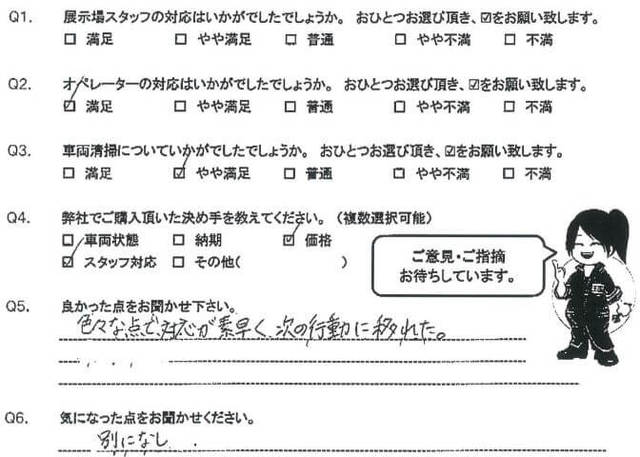 Q1. 展示場スタッフの対応はいかがでしたでしょうか。 おひとつお選び頂き、☑をお願い致します。
☐ 満足 ☐ やや満足 ☐ 普通 ☐ やや不満 ☐ 不満
Q2. オペレーターの対応はいかがでしたでしょうか。 おひとつお選び頂き、☑をお願い致します。
☑ 満足 ☐ やや満足 ☐ 普通 ☐ やや不満 ☐ 不満
Q3. 車両清掃についていかがでしたでしょうか。 おひとつお選び頂き、☑をお願い致します。
☐ 満足 ☑ やや満足 ☐ 普通 ☐ やや不満 ☐ 不満
Q4. 弊社でご購入頂いた決め手を教えてください。(複数選択可能)
☐ 車両状態 ☐ 納期 ☑ 価格
☑ スタッフ対応 ☐ その他( )
ご意見・ご指摘
お待ちしています。
Q5. 良かった点をお聞かせ下さい。
色々な点で、対応が素早く、次の行動に移れた。
Q6. 気になった点をお聞かせください。
別になし